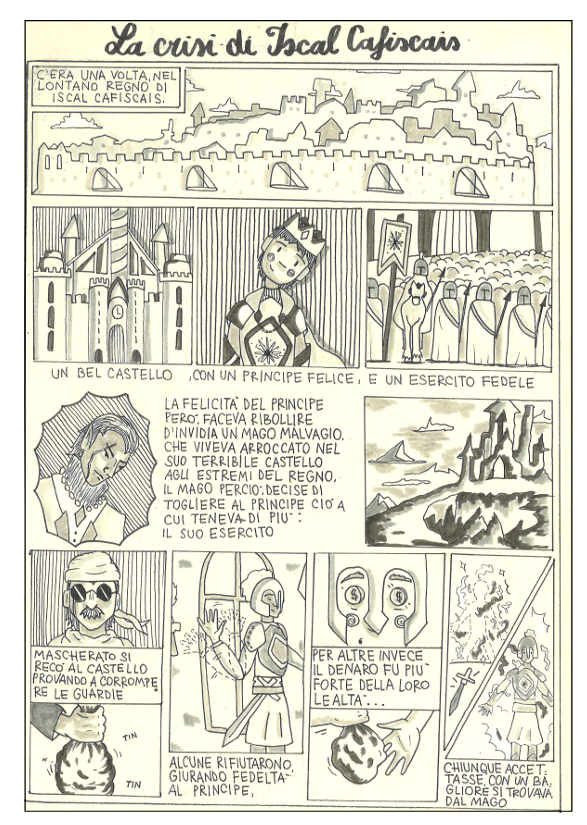 La crisi di Iscal Cafiscais
C'ERA UNA VOLTA, NEL
LONTANO REGNO DI
ISCAL CAFISCAIS.
UN BEL CASTELLO
,CON UN PRINCIPE FELICE,
E UN ESERCITO FEDELE
LA FELICITA' DEL PRINCIPE
PERO', FACEVA RIBOLLIRE
D'INVIDIA UN MAGO MALVAGIO.
CHE VIVEVA ARROCCATO NEL
SUO TERRIBILE CASTELLO
AGLI ESTREMI DEL REGNO.
IL MAGO PERCIO' DECISE DI
TOGLIERE AL PRINCIPE CIO' A
CUI TENEVA DI PIU':
IL SUO ESERCITO
MASCHERATO SI
RECO' AL CASTELLO
PROVANDO A CORROMPE
RE LE GUARDIE
TIN
TIN
ALCUNE RIFIUTARONO,
GIURANDO FEDELTA'
AL PRINCIPE,
$ $
PER ALTRE INVECE
IL DENARO FU PIU'
FORTE DELLA LORO
LEALTA'...
CHIUNQUE ACCET:
TASSE, CON UN BA_
GLIORE SI TROVAVA
DAL MAGO